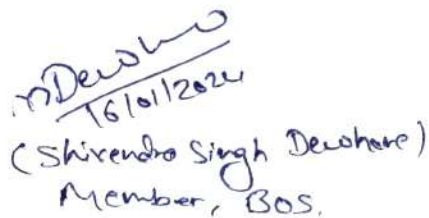 16/01/2024
(Shivendra Singh Dewhare)
Member, BOS.